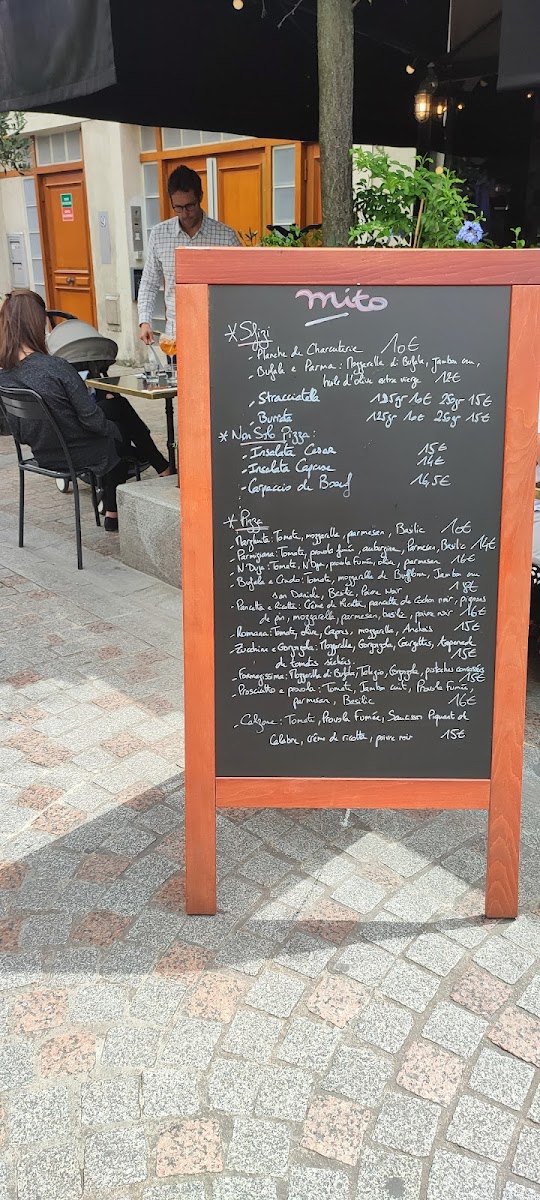 mito
* Sfizi
- Planche de Charcuterie 10€
- Bufala e Parma: Mozzarella di Bufala, Jambon cru,
huile d'olive extra vierge 12€
- Stracciatella 125gr 10€ 250gr 15€
- Burrata 125gr 10€ 250gr 15€
* Non Solo Pizza:
- Insalata Cesar 15€
- Insalata Caprese 14€
- Carpaccio de Bœuf 16,5€
* Pizza
- Margherita: Tomate, mozzarella, parmesan, Basilic 10€
- Parmigiana: Tomate, provola fumée, aubergine, Parmesan, Basilic 14€
- N'Duja: Tomate, N'Duja, provola Fumée, olive, parmesan 14€
- Bufala e Crudo: Tomate, mozzarella de Bufflonne, Jambon cru
san Daniele, Basilic, Poivre Noir 18€
- Pancetta e Ricotta: Crème de ricotta, pancetta de cochon noir, pignons
de pin, mozzarella, parmesan, basilic, poivre noir 16€
- Romana: Tomate, olive, Capres, mozzarella, Anchois 15€
- Zucchine e Gorgonzola: Mozzarella, Gorgonzola, Courgettes, Tapenade
de tomates séchées 15€
- Formagissima: Mozzarella di Bufala, Taleggio, Gorgonzola, pistaches concassées
15€
- Prosciutto e provola: Tomate, Jambon cuit, Provola Fumée,
parmesan, Basilic 16€
- Calzone: Tomate, Provola Fumée, Saucisson Piquant de
Calabre, crème de ricotta, poivre noir 15€